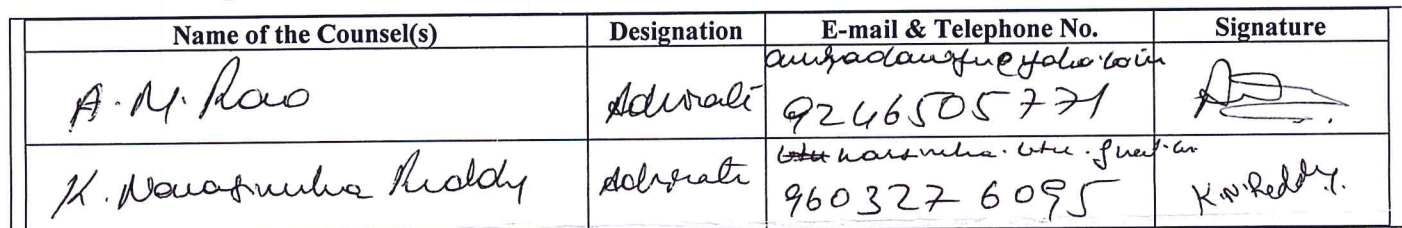 Name of the Counsel(s) Designation E-mail & Telephone No. Signature
A. M. Rao Advocate 9246505771
K. Narasimha Reddy Advocate 9603276095 K.N. Reddy.